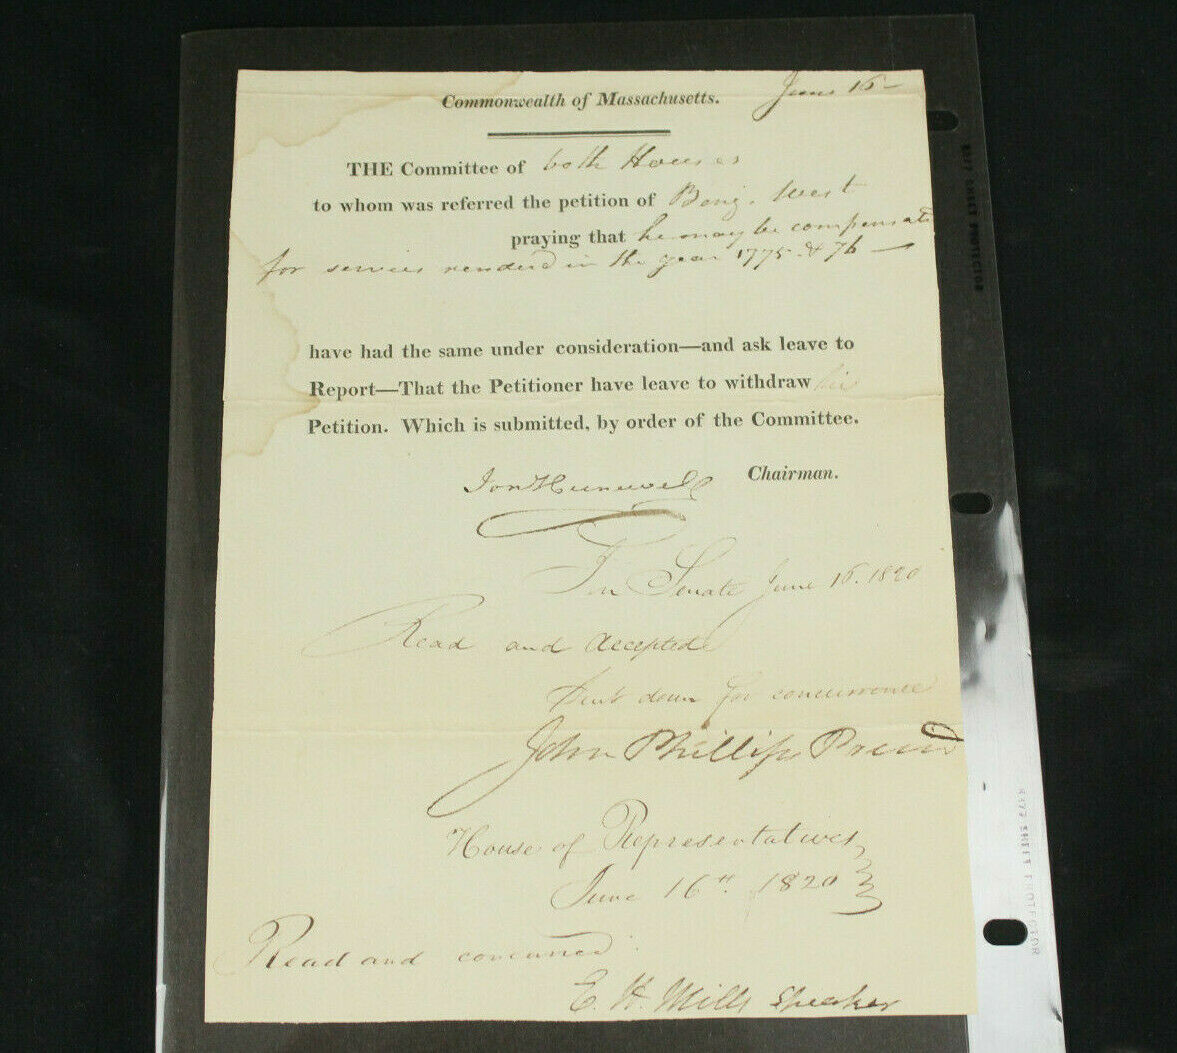 June 16
Commonwealth of Massachusetts.
THE Committee of both Houses
to whom was referred the petition of Benj. West
praying that he may be compensated
for services rendered in the year 1775 & 76
have had the same under consideration—and ask leave to
Report—That the Petitioner have leave to withdraw his
Petition. Which is submitted, by order of the Committee.
Jon Hunewell Chairman.
In Senate June 16. 1820
Read and Accepted
Sent down for concurrence
John Phillips Presid
House of Representatives
June 16th 1820
Read and concurred
E. H. Mills Speaker
SHEET PROTECTOR
SHEET PROTECTOR